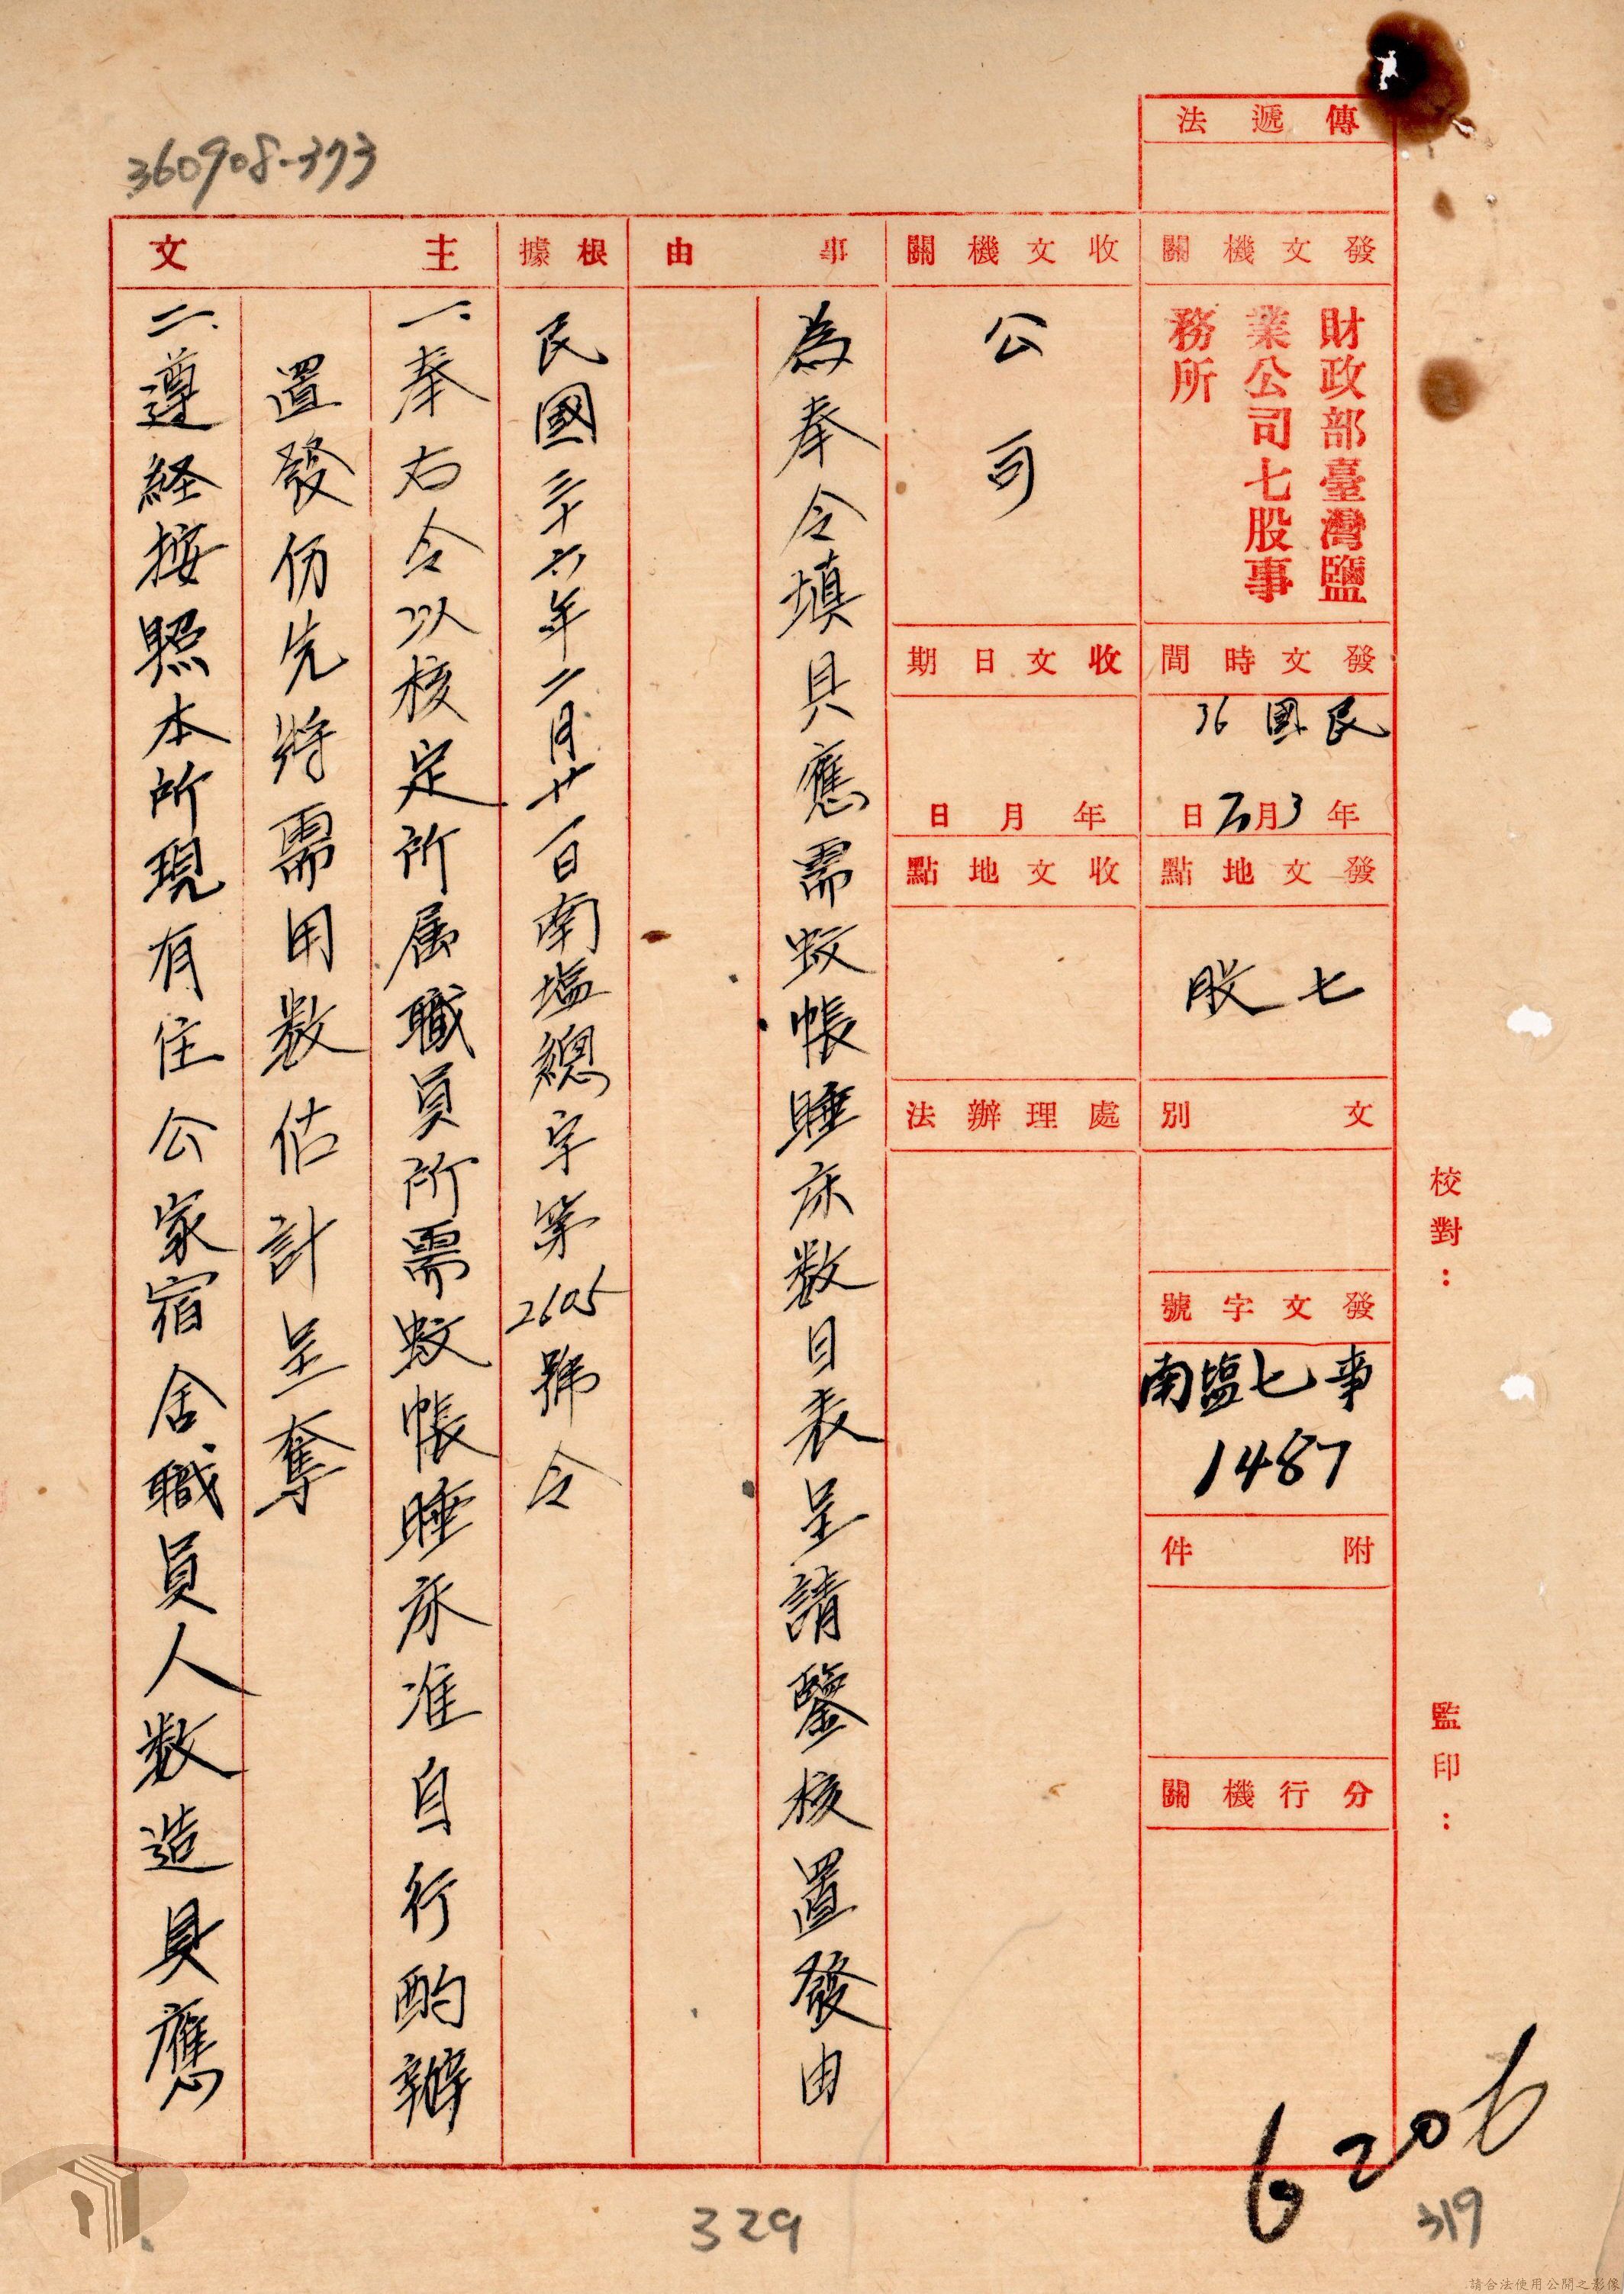 360908-373
傳遞法
發文機關
財政部臺灣鹽
業公司七股事
務所
發文時間
民國36
年3月 日
發文地點
七股
文別
發文字號
南塩七事
1487
附件
分行機關
校對：
監印：
收文機關
公司
收文日期
年月日
收文地點
處理辦法
事由
為奉令填具應需蚊帳睡床数目表呈請鑒核置發由
根據
民國三十六年二月廿一日南塩總字第2605號令
主文
一、奉右令以核定所属職員所需蚊帳睡床准自行酌辦
置發仍先將需用数估計呈奪
二、遵経按照本所現有住公家宿舍職員人数造具應
6206
329
319
請合法使用公開之影像